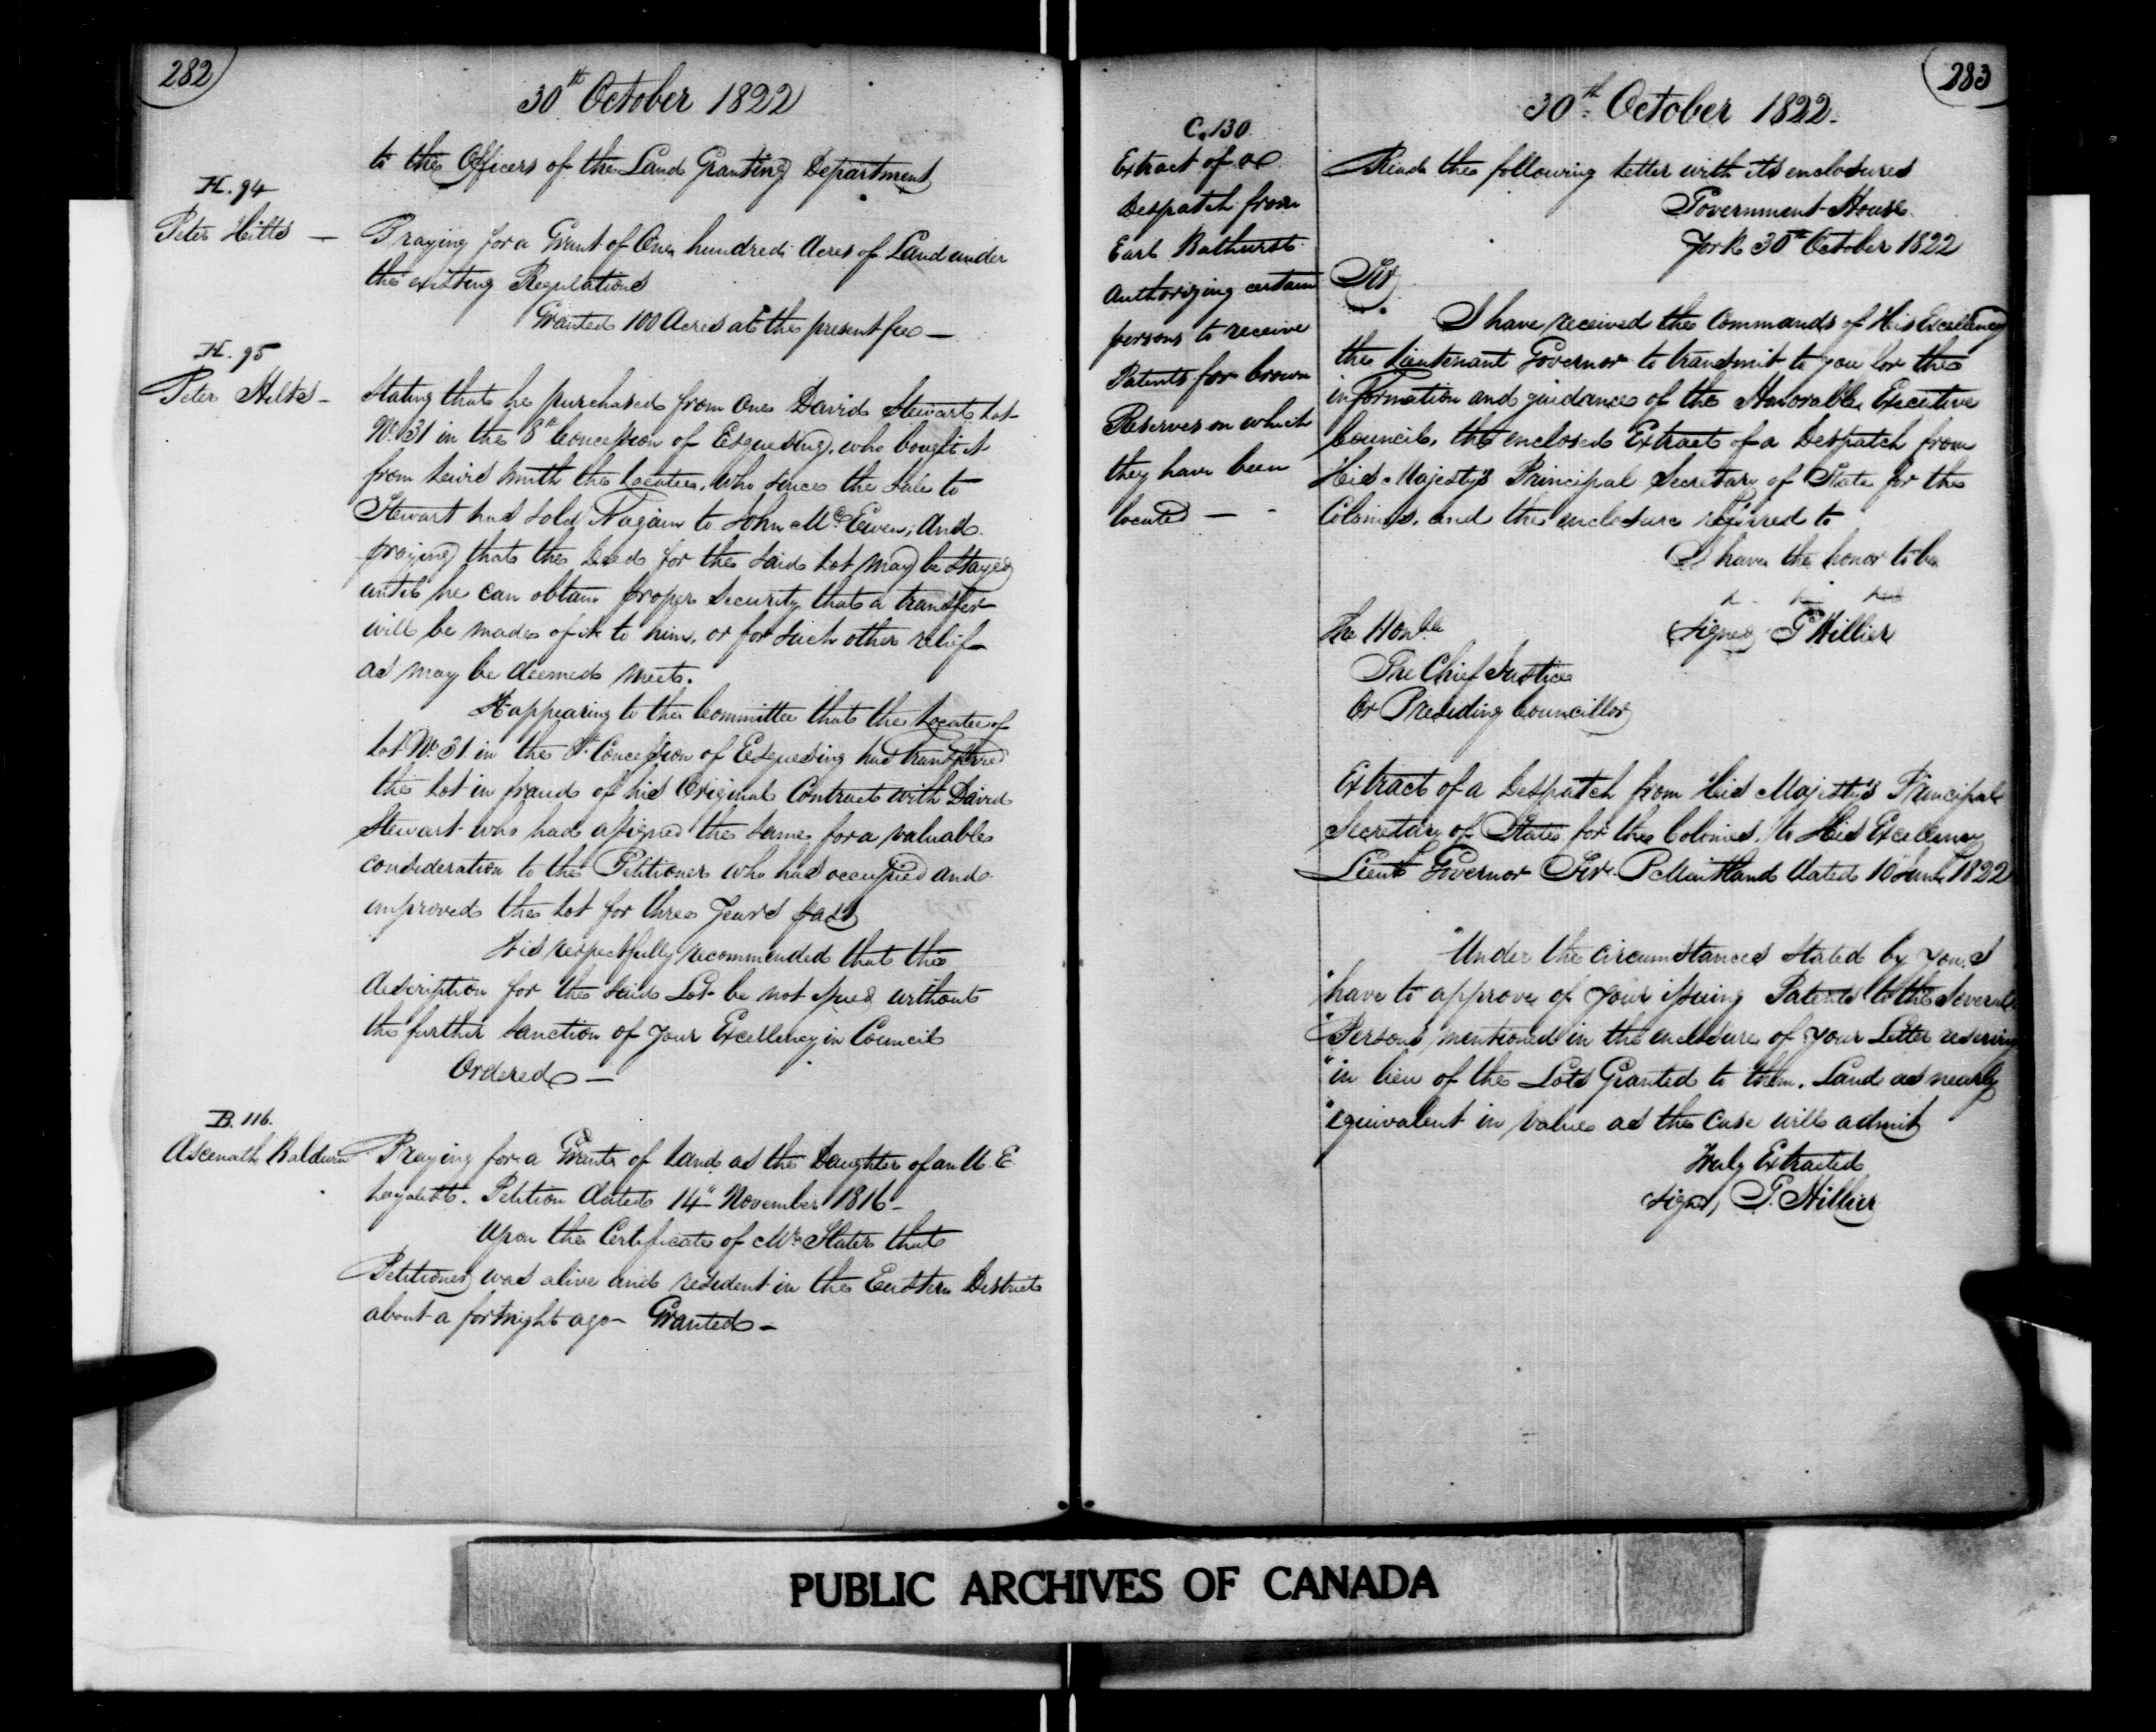 282
30th October 1822
to the Officers of the Land Granting Department
H. 94
Peter Hilts —
Praying for a Grant of One hundred Acres of Land under
the existing Regulations
Granted 100 Acres at the present fee —
H. 95
Peter Hilts —
Stating that he purchased from one David Stewart Lot
No. 31 in the 8th Concession of Esquesing, who bought it
from Lewis Smith the Locatee, who since the Sale to
Stewart had sold it again to John McEwen, And
praying that the Deed for the said Lot may be stayed
until he can obtain proper security that a transfer
will be made of it to him, or for such other relief
as may be deemed meet.
It appearing to the Committee that the Locatee of
Lot No. 31 in the 8th Concession of Esquesing had transferred
the Lot in fraud of his Original Contract with David
Stewart who had assigned the same for a valuable
consideration to the Petitioner who had occupied and
improved the Lot for three Years past
It is respectfully recommended that the
description for the said Lot be not issued without
the further sanction of Your Excellency in Council
Ordered —
B. 116.
Asenath Baldwin
Praying for a Grant of Land as the Daughter of an U. E.
Loyalist. Petition dated 14th November 1816 —
Upon the Certificate of Mr. Slater that
Petitioner was alive and resident in the Eastern District
about a fortnight ago — Granted —
283
30th October 1822.
C. 130.
Extract of a
Despatch from
Earl Bathurst
Authorizing certain
persons to receive
Patents for Crown
Reserves on which
they have been
located — -
Read the following letter with its enclosures
Government House
York 30th October 1822
Sir
I have received the Commands of His Excellency
the Lieutenant Governor to transmit to you for the
information and guidance of the Honorable Executive
Council, the enclosed Extract of a Despatch from
His Majesty's Principal Secretary of State for the
Colonies, and the enclosure referred to
I have the honor to be
Signed G Hillier
The Honble
The Chief Justice
Or Presiding Councillor
Extract of a Despatch from His Majesty's Principal
Secretary of State for the Colonies, to His Excellency
Lieut Governor Sir P Maitland dated 10 June 1822
"Under the circumstances stated by you, I
"have to approve of your issuing Patents to the Several
"Persons mentioned in the enclosure of your Letter reserving
"in lieu of the Lots Granted to them, Land as nearly
"equivalent in value as the Case will admit
Truly Extracted
Signed, G. Hillier
PUBLIC ARCHIVES OF CANADA